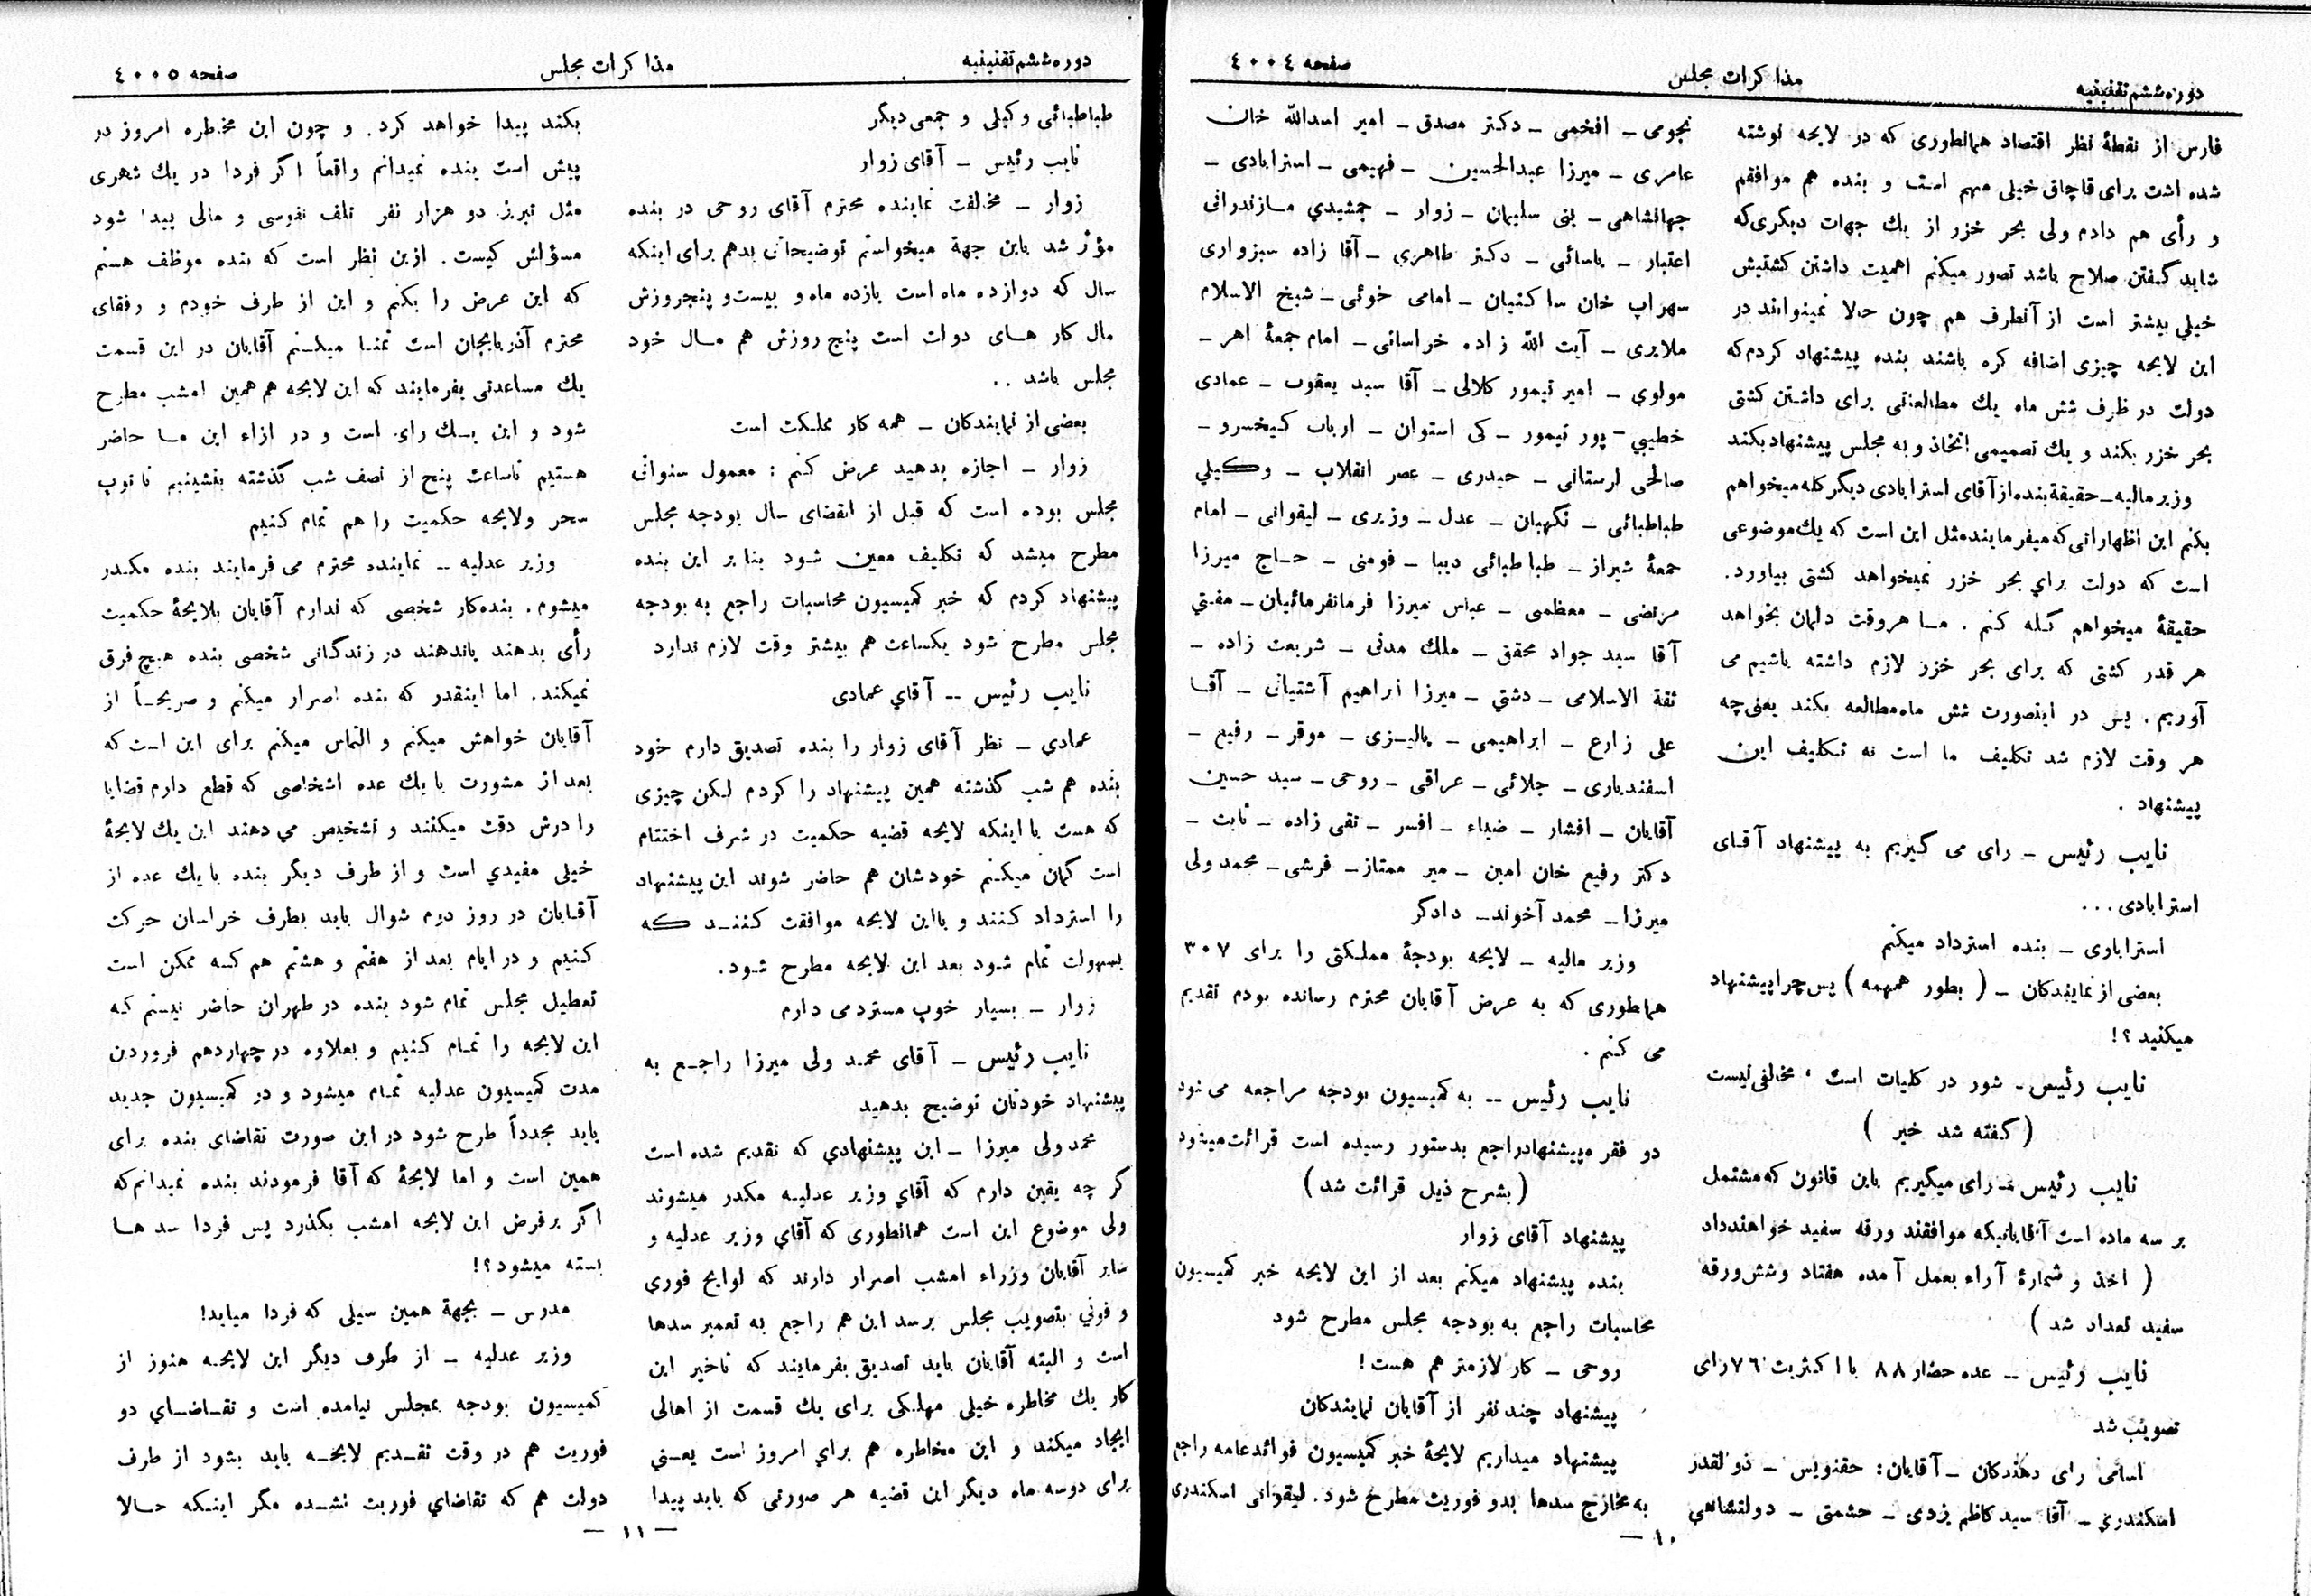 دوره ششم تقنینیه
مذاکرات مجلس
صفحه ٤٠٠٤
فارس از نقطهٔ نظر اقتصاد همانطوری که در لایحه نوشته
شده است برای قاچاق خیلی مهم است و بنده هم موافقم
و رأی هم دادم ولی بحر خزر از یك جهات دیگری که
شاید گفتن صلاح باشد تصور میکنم اهمیت داشتن کشتیش
خیلي بیشتر است از آنطرف هم چون حالا نمیتوانند در
این لایحه چیزی اضافه کره باشند بنده پیشنهاد کردم که
دولت در ظرف شش ماه یك مطالعاتی برای داشتن کشتی
بحر خزر بکند و یك تصمیمی اتخاذ و به مجلس پیشنهاد بکند
وزیر مالیه ـ حقیقة بنده از آقای استرابادی دیگر کله میخواهم
بکنم این اظهاراتی که میفرمایند مثل این است که یك موضوعی
است که دولت براي بحر خزر نمیخواهد کشتی بیاورد.
حقیقهٔ میخواهم گله کنم . ما هر وقت دلمان بخواهد
هر قدر کشتی که برای بحر خزر لازم داشته باشیم می
آوریم . پس در اینصورت شش ماه مطالعه بکند یعنی چه
هر وقت لازم شد تکلیف ما است نه تکلیف این
پیشنهاد .
نایب رئیس ـ رای می گیریم به پیشنهاد آقای
استرابادی ...
استراباوی ـ بنده استرداد میکنم
بعضی از نمایندکان ـ ( بطور همهمه ) پس چرا پیشنهاد
میکنید ؟!
نایب رئیس ـ شور در کلیات است ، مخالفی نیست
( گفته شد خیر )
نایب رئیس ـ رای میگیریم باین قانون که مشتمل
بر سه ماده است آقایانیکه موافقند ورقه سفید خواهند داد
( اخذ و شمارهٔ آراء بعمل آمده هفتاد و شش ورقه
سفید تعداد شد )
نایب رئیس ـ عده حضار ٨٨ با اکثریت ٧٦ رای
تصویب شد
اسامی رای دهندکان ـ آقایان : حقنویس ـ ذوالقدر
اسکندري ـ آقا سید کاظم یزدی ـ حشمتی ـ دولتشاهي
نجومی ـ افخمی ـ دکتر مصدق ـ امیر اسدالله خان
عامری ـ میرزا عبدالحسین ـ فهیمی ـ استرابادی ـ
جهانشاهی ـ بنی سلیمان ـ زوار ـ جمشیدي مازندرانی
اعتبار ـ یاسائی ـ دکتر طاهري ـ آقا زاده سبزواری
سهراب خان ساکنیان ـ امامی خوئی ـ شیخ الاسلام
ملایری ـ آیت الله زاده خراسانی ـ امام جمعهٔ اهر ـ
مولوي ـ امیر تیمور کلالی ـ آقا سید یعقوب ـ عمادی
خطیبي ـ پور تیمور ـ کی استوان ـ ارباب کیخسرو ـ
صالحی لرستانی ـ حیدری ـ عصر انقلاب ـ وکیلي
طباطبائی ـ نگهبان ـ عدل ـ وزیری ـ لیقوانی ـ امام
جمعهٔ شیراز ـ طباطبائی دیبا ـ فومنی ـ حاج میرزا
مرتضی ـ معظمی ـ عباس میرزا فرمانفرمائیان ـ مفتي
آقا سید جواد محقق ـ ملك مدنی ـ شریعت زاده ـ
ثقة الاسلامی ـ دشتي ـ میرزا ابراهیم آشتیانی ـ آقا
علی زارع ـ ابراهیمی ـ پالیزی ـ موقر ـ رفیع ـ
اسفندیاری ـ جلائی ـ عراقی ـ روحی ـ سید حسین
آقایان ـ افشار ـ ضیاء ـ افسر ـ تقی زاده ـ ثابت ـ
دکتر رفیع خان امین ـ میر ممتاز ـ فرشی ـ محمد ولی
میرزا ـ محمد آخوند ـ دادگر
وزیر مالیه ـ لایحه بودجهٔ مملکتی را برای ٣٠٧
هماطوری که به عرض آقایان محترم رسانده بودم تقدیم
می کنم .
نایب رئیس -- به کمیسیون بودجه مراجعه می شود
دو فقره پیشنهاد راجع بدستور رسیده است قرائت میشود
( بشرح ذیل قرائت شد )
پیشنهاد آقای زوار
بنده پیشنهاد میکنم بعد از این لایحه خبر کمیسیون
محاسبات راجع به بودجه مجلس مطرح شود
روحی ـ کار لازمتر هم هست !
پیشنهاد چند نفر از آقایان نمایندکان
پیشنهاد میداریم لایحهٔ خبر کمیسیون فوائد عامه راجع
به مخارج سدها بدو فوریت مطرح شود . لیقوانی اسکندری
١٠ —
دوره ششم تقنینیه
مذاکرات مجلس
صفحه ٤٠٠٥
طباطبائی وکیلی و جمعی دیگر
نایب رئیس ـ آقای زوار
زوار ـ مخالفت نماینده محترم آقای روحی در بنده
مؤثر شد باین جهة میخواستم توضیحاتی بدهم برای اینکه
سال که دوازده ماه است یازده ماه و بیست و پنجروزش
مال کار های دولت است پنج روزش هم مال خود
مجلس باشد ..
بعضی از نمایندکان ـ همه کار مملکت است
زوار ـ اجازه بدهید عرض کنم : معمول سنواتی
مجلس بوده است که قبل از انقضای سال بودجه مجلس
مطرح میشد که تکلیف معین شود بنابر این بنده
پیشنهاد کردم که خبر کمیسیون محاسبات راجع به بودجه
مجلس مطرح شود یکساعت هم بیشتر وقت لازم ندارد
نایب رئیس -- آقاي عمادی
عمادي ـ نظر آقای زوار را بنده تصدیق دارم خود
بنده هم شب گذشته همین پیشنهاد را کردم لکن چیزی
که هست با اینکه لایحه قضیه حکمیت در شرف اختتام
است گمان میکنم خودشان هم حاضر شوند این پیشنهاد
را استرداد کنند و با این لایحه موافقت کنند که
بسهولت تمام شود بعد این لایحه مطرح شود.
زوار ـ بسیار خوب مسترد می دارم
نایب رئیس ـ آقای محمد ولی میرزا راجع به
پیشنهاد خودتان توضیح بدهید
محمد ولی میرزا ـ این پیشنهادي که تقدیم شده است
گر چه یقین دارم که آقاي وزیر عدلیه مکدر میشوند
ولی موضوع این است همانطوری که آقاي وزیر عدلیه و
سایر آقایان وزراء امشب اصرار دارند که لوایح فوری
و فوتي بتصویب مجلس برسد این هم راجع به تعمیر سدها
است و البته آقایان باید تصدیق بفرمایند که تاخیر این
کار یك مخاطره خیلی مهلکی برای یك قسمت از اهالی
ایجاد میکند و این مخاطره هم براي امروز است یعني
برای دو سه ماه دیگر این قضیه هر صورتی که باید پیدا
بکند پیدا خواهد کرد . و چون این مخاطره امروز در
پیش است بنده نمیدانم واقعاً اگر فردا در یك شهری
مثل تبریز دو هزار نفر تلف نفوسی و مالی پیدا شود
مسؤلش کیست . ازین نظر است که بنده موظف هستم
که این عرض را بکنم و این از طرف خودم و رفقای
محترم آذربایجان است تمنا میکنم آقایان در این قسمت
یك مساعدتی بفرمایند که این لایحه هم همین امشب مطرح
شود و این یك رای است و در ازاء این ما حاضر
هستیم تاساعت پنج از نصف شب گذشته بنشینیم تا توپ
سحر و لایحه حکمیت را هم تمام کنیم
وزیر عدلیه -- نماینده محترم می فرمایند بنده مکدر
میشوم . بنده کار شخصی که ندارم آقایان بلایحهٔ حکمیت
رأی بدهند یا ندهند در زندگانی شخصی بنده هیچ فرق
نمیکند . اما اینقدر که بنده اصرار میکنم و صریحاً از
آقایان خواهش میکنم و التماس میکنم برای این است که
بعد از مشورت با یك عده اشخاصی که قطع دارم قضایا
را درش دقت میکنند و تشخیص می دهند این یك لایحهٔ
خیلی مفیدي است و از طرف دیگر بنده با یك عده از
آقایان در روز دوم شوال باید بطرف خراسان حرکت
کنیم و در ایام بعد از هفتم و هشتم هم که ممکن است
تعطیل مجلس تمام شود بنده در طهران حاضر نیستم که
این لایحه را تمام کنیم و بعلاوه در چهاردهم فروردن
مدت کمیسیون عدلیه تمام میشود و در کمیسیون جدید
باید مجدداً طرح شود در این صورت تقاضای بنده برای
همین است و اما لایحهٔ که آقا فرمودند بنده نمیدانم که
اگر برفرض این لایحه امشب بگذرد پس فردا سد ها
بسته میشود ؟!
مدرس ـ بجهة همین سیلی که فردا میاید!
وزیر عدلیه ـ از طرف دیگر این لایحه هنوز از
کمیسیون بودجه بمجلس نیامده است و تقاضاي دو
فوریت هم در وقت تقدیم لایحه باید بشود از طرف
دولت هم که تقاضاي فوریت نشده مگر اینکه حالا
— ١١ —